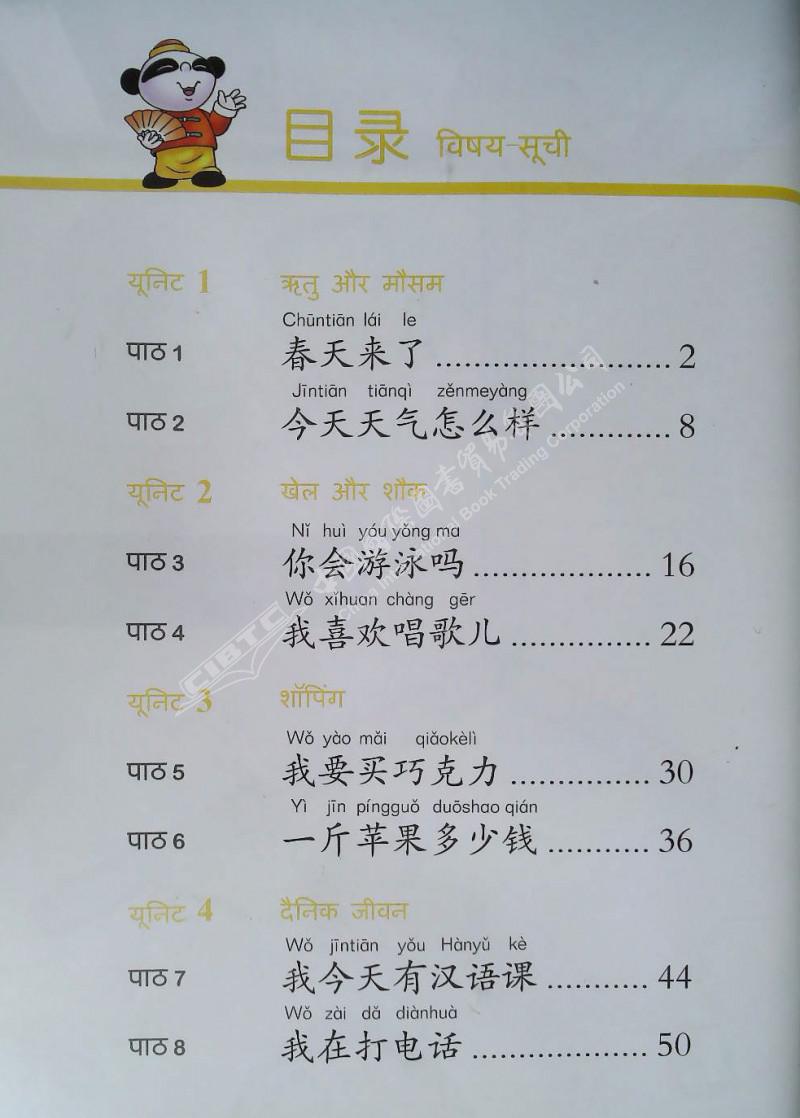 目录 विषय-सूची
यूनिट 1 ऋतु और मौसम
Chūntiān lái le
पाठ 1 春天来了 ........................ 2
Jīntiān tiānqì zěnmeyàng
पाठ 2 今天天气怎么样 ............. 8
यूनिट 2 खेल और शौक
Nǐ huì yóu yǒng ma
पाठ 3 你会游泳吗 ................... 16
Wǒ xǐhuan chàng gēr
पाठ 4 我喜欢唱歌儿 ............... 22
यूनिट 3 शॉपिंग
Wǒ yào mǎi qiǎokèlì
पाठ 5 我要买巧克力 ............... 30
Yì jīn píngguǒ duōshao qián
पाठ 6 一斤苹果多少钱 ........... 36
यूनिट 4 दैनिक जीवन
Wǒ jīntiān yǒu Hànyǔ kè
पाठ 7 我今天有汉语课 ........... 44
Wǒ zài dǎ diànhuà
पाठ 8 我在打电话 ................... 50
CIBTC 中国国际图书贸易集团公司
China International Book Trading Corporation